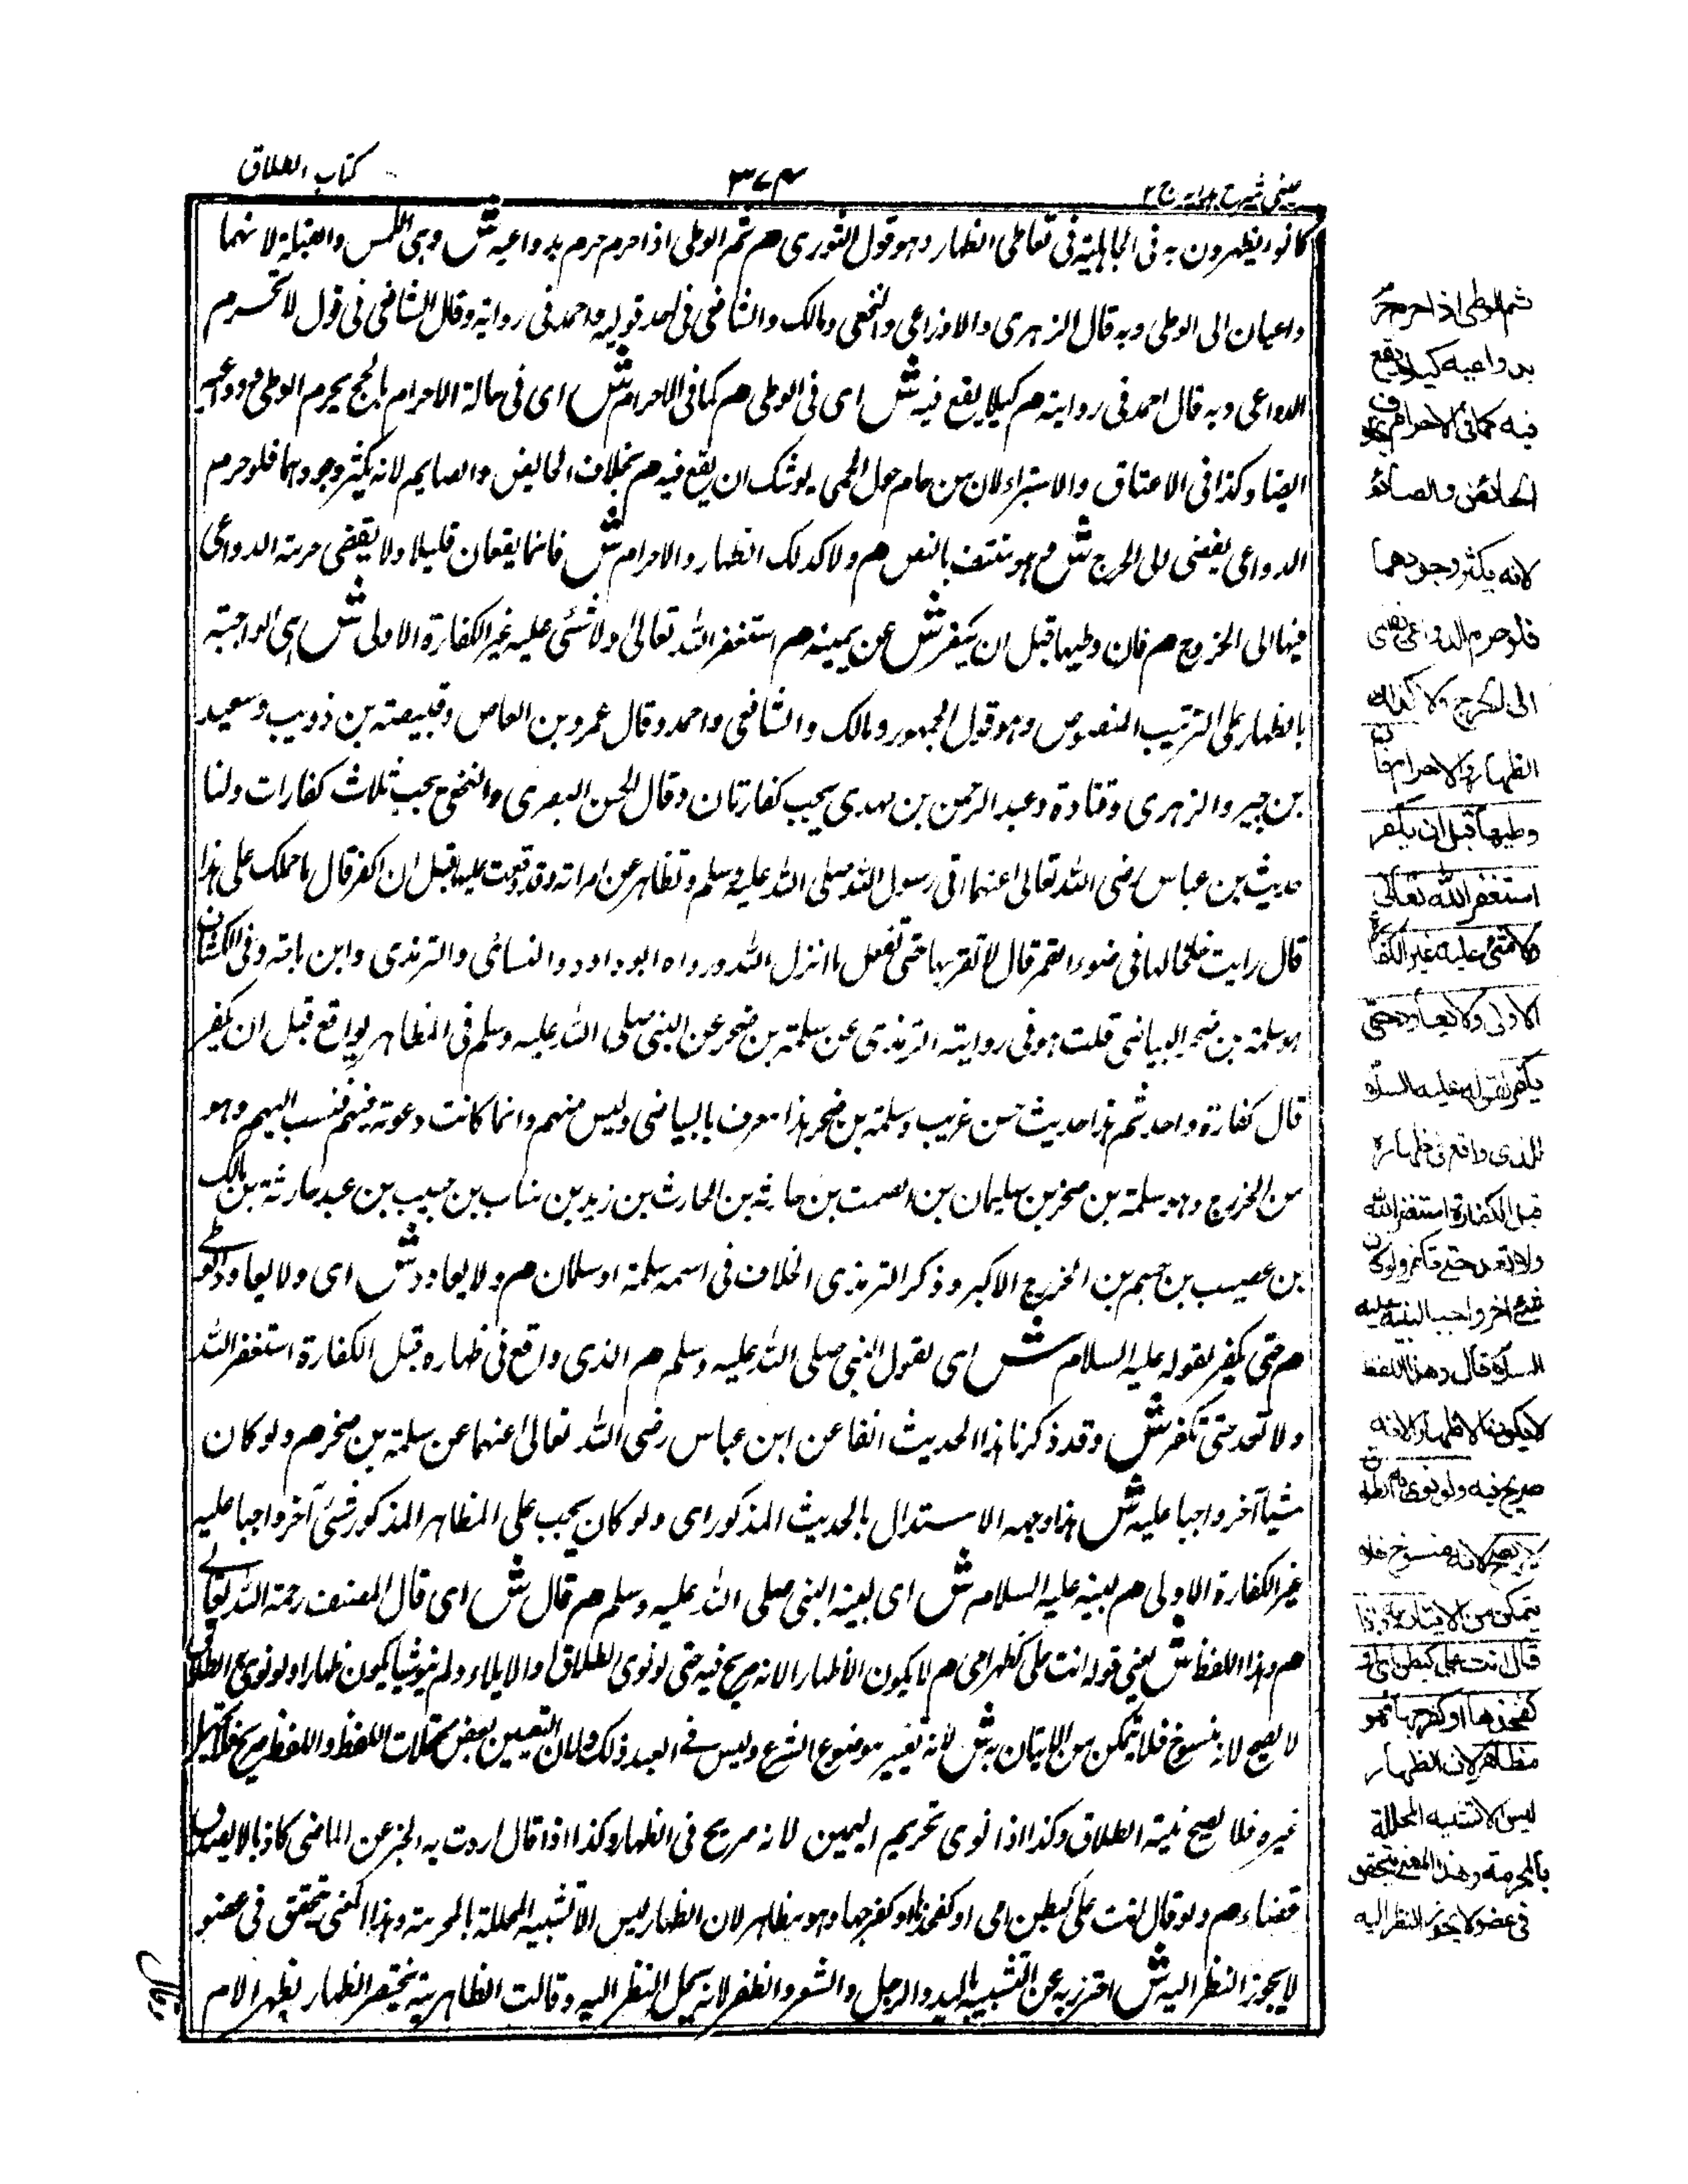 عينى شرح هدايه ج ٢
٣٧٤
كتاب الطلاق
كانوا يظهرون به فى الجاهلية فى تعاطى الظهار وهو قول الثورى هم ثم الوطى اذا حرم حرم بدواعيه ش وهى اللمس والقبلة لانهما
داعيان الى الوطى وبه قال الزهرى والاوزاعى والنخعى ومالك والشافعى فى احد قوليه واحمد فى رواية وقال الشافعى فى قول لا تحرم
الدواعى وبه قال احمد فى رواية هم كيلا يقع فيه ش اى فى الوطى هم كما فى الاحرام ش اى فى حالة الاحرام بالحج يحرم الوطى ودواعيه
ايضا وكذا فى الاعتاق والاستبراء لان من حام حول الحمى يوشك ان يقع فيه هم بخلاف الحايض والصايم لانه يكثر وجودهما فلو حرم
الدواعى يفضى الى الحرج ش وهو منتف بالنص هم ولا كذلك الظهار والاحرام ش فانما يقعان قليلا ولا يقضى حرمة الدواعى
فيها الى الحروج هم فان وطيها قبل ان يكفر ش عن يمينه هم استغفر الله تعالى ولا شئى عليه غير الكفارة الاولى ش اى الواجبة
بالظهار على الترتيب المنصوص وهو قول الجمهور ومالك والشافعى واحمد وقال عمرو بن العاص وقبيصته بن ذويب وسعيد
بن جبير والزهرى وقتادة وعبد الرحمن بن مهدى يجب كفارتان وقال الحسن البصرى والنخعى يجب ثلاث كفارات ولنا
حديث بن عباس رضى الله تعالى عنهما اتى رسول الله صلى الله عليه وسلم وتظاهر عن امراته وقد وقعت عليها قبل ان اكفر قال ما حملك على هذا
قال رايت خلخالها فى ضوء القمر قال لا تقربها حتى تفعل ما انزل الله ورواه ابو داود والنسائى والترمذى وابن ماجه وفى
هو سلمة بن صخر البياضى قلت هو فى رواية الترمذى عن سلمة بن صخر عن النبى صلى الله عليه وسلم فى المظاهر يواقع قبل ان يكفر
قال كفارة واحدة ثم هذا حديث حسن غريب وسلمة بن صخر هذا معرف بالبياضى وليس منهم وانما كانت دعوته فيهم فنسب اليهم وهو
من الخزرج وهو سلمة بن صخر بن سليمان بن الصمت بن حارثه بن الحارث بن زيد بن مناب بن حبيب بن عبد حارثة بن مالك
بن عصيب بن جسم بن الخزرج الاكبر وذكر الترمذى الخلاف فى اسمه سلمة او سلمان هم ولا يعاود ش اى ولا يعاود الوطى
هم حتى يكفر لقوله عليه السلام ش اى لقول النبى صلى الله عليه وسلم هم الذى واقع فى ظهاره قبل الكفارة استغفر الله
ولا تعد حتى تكفر ش وقد ذكرنا هذا الحديث انفا عن ابن عباس رضى الله تعالى عنهما عن سلمة بن صخر هم ولو كان
شيأ آخر واجبا عليه ش هذا وجهه الاستدال بالحديث المذكور اى ولو كان يجب على المظاهر المذكور شئى آخر واجبا عليه
غير الكفارة الاولى هم لبينه عليه السلام ش اى لبينه النبى صلى الله عليه وسلم هم قال ش اى قال المصنف رحمة الله تعالے
هم وهذا اللفظ ش يعنى قوله انت على كظهر امى هم لا يكون الا ظهارا لانه صريح فيه حتى لو نوى الطلاق او الايلاء ولم ينو شيا يكون ظهارا ولو نوى به الطلاق
لا يصح لانه منسوخ فلا يتمكن من الاتيان به ش لانه تغيير موضوع الشرع وليس فے العبد ذلك ولان التعيين لبعض محتملات اللفظ واللفظ صريح
غيره فلا يصح نية الطلاق وكذا اذا نوى تحريم اليمين لانه صريح فى الظهار وكذا اذا قال اردت به الخبر عن الماضى كاذبا لا يصدق
قضاء هم ولو قال انت على كبطن امى او كفخذها او كفرجها وهو مظاهر لان الظهار ليس الا تشبيه المحللة بالمحرمة وهذا المعنى يتحقق فى عضو
لا يجوز النظر اليه ش احترز به عن التشبيه باليد والرجل والشعر والظفر لانه يحل النظر اليه وقالت الظاهرية يختص الظهار بظهر الام
ثم الوطى اذا حرم حرم
بدواعيه كيلا يقع
فيه كما فى الاحرام بخلاف
الحائض والصائم
لانه يكثر وجودهما
فلو حرم الدواعى يفضى
الى الحرج ولا كذلك
الظهار والاحرام فان
وطيها قبل ان يكفر
استغفر الله تعالى
ولا شئ عليه غير الكفارة
الاولى ولا يعاود حتى
يكفر لقوله عليه السلام
للذى واقع فى ظهاره
قبل الكفارة استغفر الله
ولا تعد حتے تكفر ولو كان
شئ اخر واجب لبينه عليه
السلام قال وهذا اللفظ
لا يكون الا ظهارا لانه
صريح فيه ولو نوى به الطلاق
لا يصح لانه منسوخ فلا
يتمكن من الاتيان به واذا
قال انت على كبطن امى او
كفخذها او كفرجها فهو
مظاهر لان الظهار
ليس الا تشبيه المحللة
بالمحرمة وهذا المعنى يتحقق
فى عضو لا يجوز النظر اليه